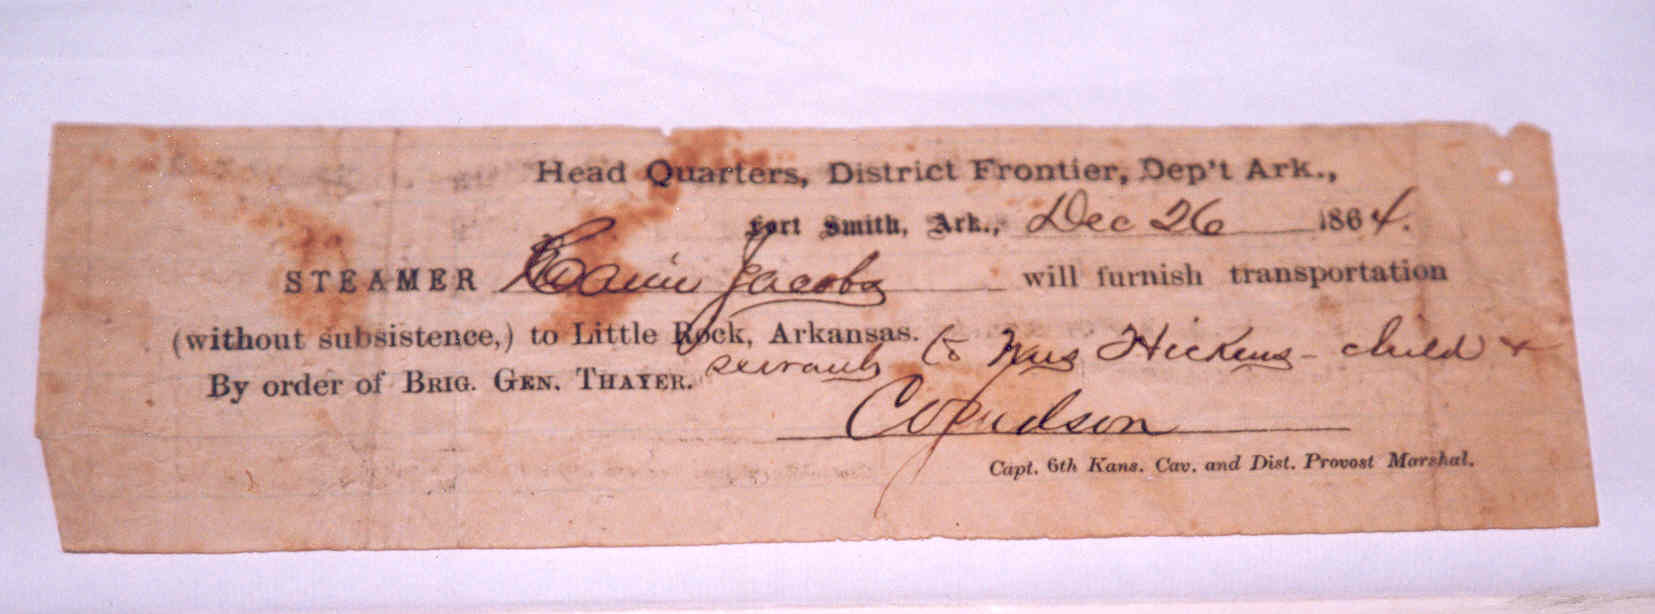 Head Quarters, District Frontier, Dep't Ark.,
Fort Smith, Ark., Dec 26 1864.
STEAMER Jacobs will furnish transportation
(without subsistence,) to Little Rock, Arkansas. to Mrs Hickens - child +
servants
By order of BRIG. GEN. THAYER.
C O Judson
Capt. 6th Kans. Cav. and Dist. Provost Marshal.